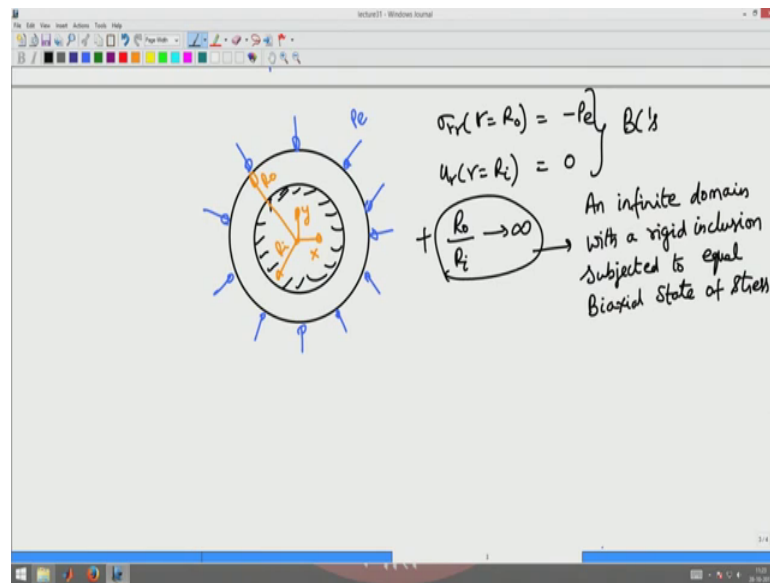 lecture31 - Windows Journal
File Edit View Insert Actions Tools Help
Page Width
B I
Pe
Ro
y
Ri
x
σrr(r=Ro) = -Pe
ur(r=Ri) = 0
} BC's
+ Ro/Ri → ∞ →
An infinite domain
with a rigid inclusion
subjected to equal
Biaxial State of Stress
3/4
11:25